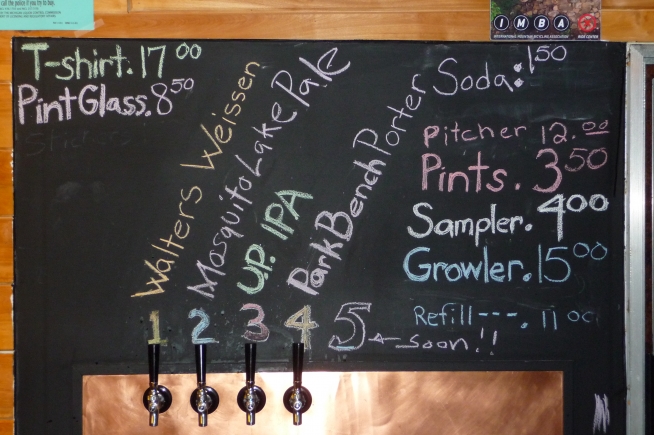 call the police if you try to buy.
IMBA
INTERNATIONAL MOUNTAIN BICYCLING ASSOCIATION
T-shirt. 17 00
Pint Glass. 8 50
Stickers
Walters Weissen
Mosquito Lake Pale
U.P. IPA
Park Bench Porter
1 2 3 4 5 ← soon!!
Soda: 1 50
Pitcher 12.00
Pints. 3 50
Sampler. 4 00
Growler. 15 00
Refill ---. 11 00